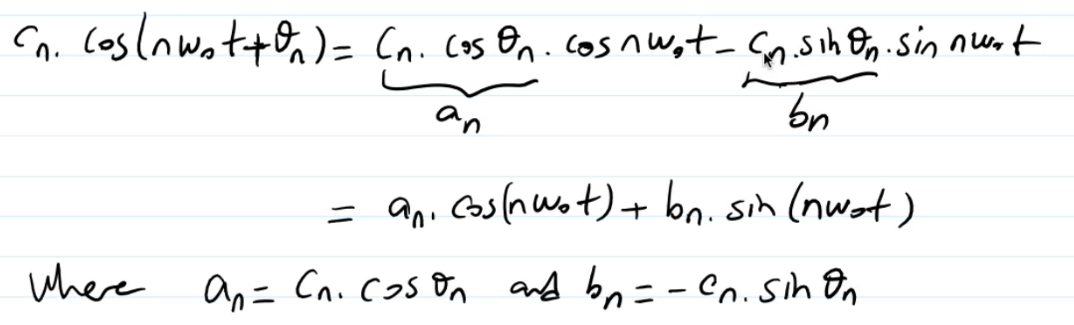 Cn. cos(nω₀t+θn) = Cn. cos θn. cos nω₀t - Cn. sin θn. sin nω₀t
an bn
= an. cos(nω₀t) + bn. sin(nω₀t)
where an = Cn. cos θn and bn = - Cn. sin θn